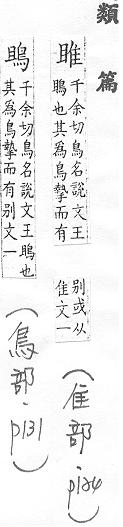 類篇
雎
千余切鳥名說文王
鴡也其為鳥摯而有
别或从
隹文一
(隹部.p124)
鴡
千余切鳥名說文王鴡也
其為鳥摯而有别文一
(鳥部.p131)